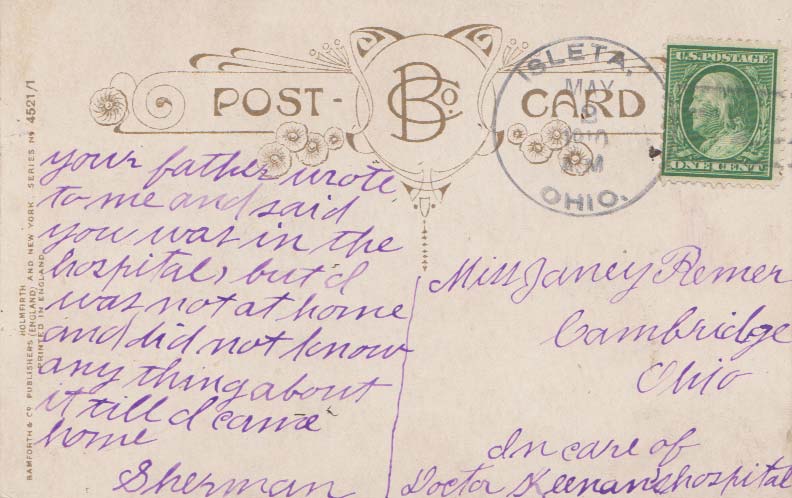 POST- BCo. CARD
ISLETA.
MAY
1910
M
OHIO.
U.S. POSTAGE
ONE CENT
your father wrote
to me and said
you was in the
hospital, but I
was not at home
and did not know
any thing about
it till I came
home
Sherman
Miss Janey Remer
Cambridge
Ohio
In care of
Doctor Keenan's hospital
BAMFORTH & Co. PUBLISHERS (ENGLAND) AND NEW YORK SERIES No 4521/1
HOLMFIRTH
PRINTED IN ENGLAND